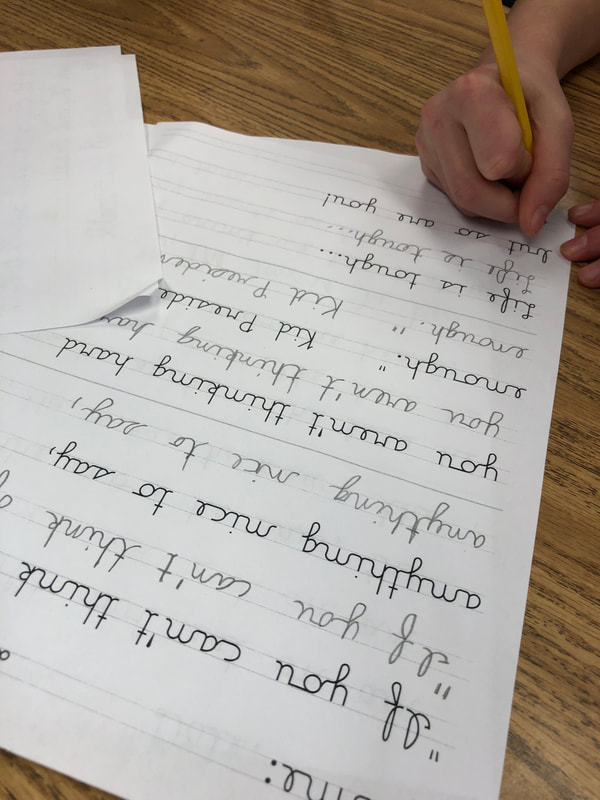 me:
"If you can't think
"If you can't think
anything nice to say,
anything nice to say,
you aren't thinking hard
you aren't thinking har
enough." Kid Preside
enough." Kid Presiden
Life is tough...
Life is tough...
but so are you!